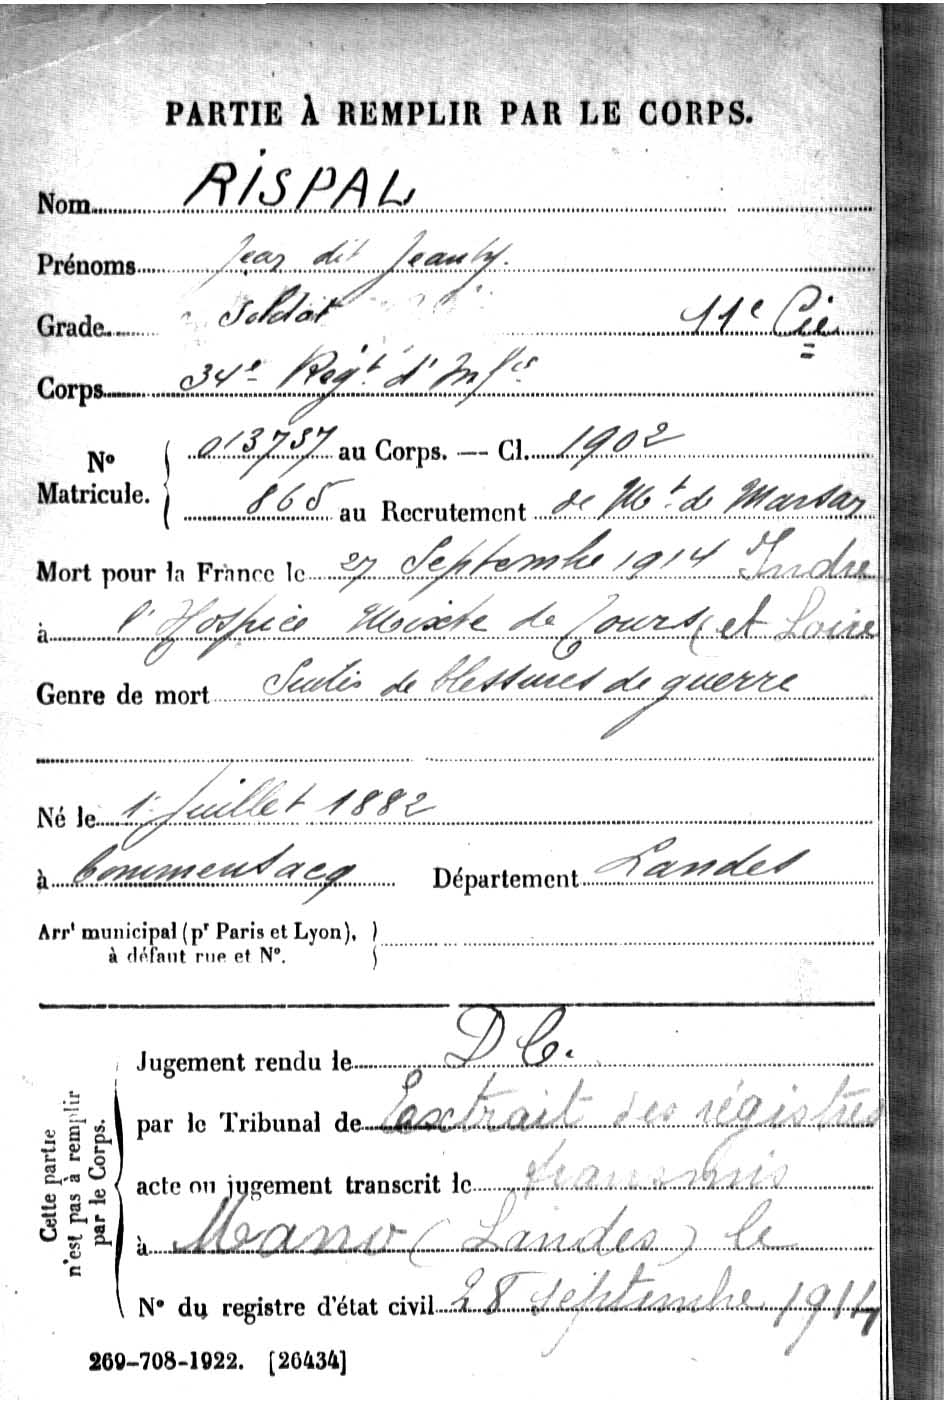 PARTIE À REMPLIR PAR LE CORPS.
Nom RISPAL
Prénoms Jean dit Jeanty.
Grade Soldat 11e Cie
Corps 34e Régt d'Infie
No Matricule. 013737 au Corps. — Cl. 1902
865 au Recrutement de Mt de Marsan
Mort pour la France le 27 Septembre 1914 Indre
à l'Hospice Mixte de Tours (et Loire
Genre de mort Suites de blessures de guerre
Né le 1er Juillet 1882
à Commensacq Département Landes
Arrt municipal (pr Paris et Lyon),
à défaut rue et No.
Cette partie
n'est pas à remplir
par le Corps.
Jugement rendu le D C.
par le Tribunal de Extrait des régistres
acte ou jugement transcrit le transmis
à Mano (Landes) le
No du registre d'état civil 28 septembre 1914
269-708-1922. [26434]